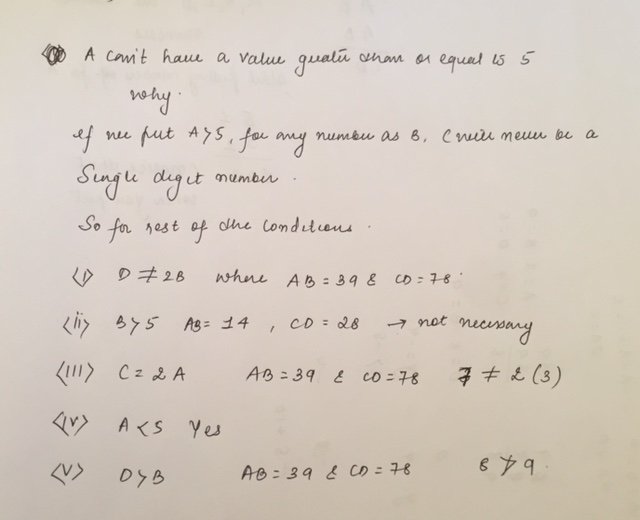 A can't have a value greater than or equal to 5
why.
If we put A>5, for any number as B, C will never be a
Single digit number.
So for rest of the conditions.
<i> D ≠ 2B where AB = 39 & CD = 78
<ii> B>5 AB = 14, CD = 28 → not necessary
<iii> C = 2A AB = 39 & CD = 78 7 ≠ 2(3)
<iv> A<5 Yes
<v> D>B AB = 39 & CD = 78 8 ≯ 9.